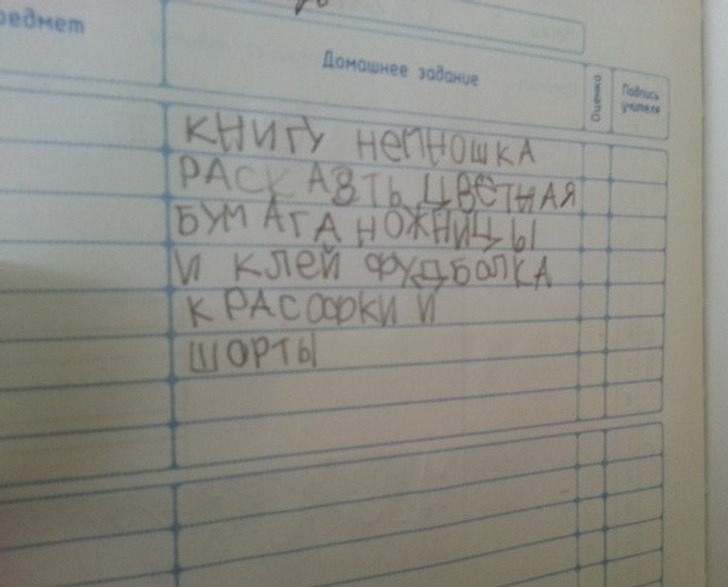 редмет
Домашнее задание
Оценка
Подпись учителя
КНИГУ НЕМНОШКА
РАСКАЗТЬ ЦВЕТНАЯ
БУМАГА НОЖНИЦЫ
И КЛЕЙ ФУДБОЛКА
КРАСОФКИ И
ШОРТЫ